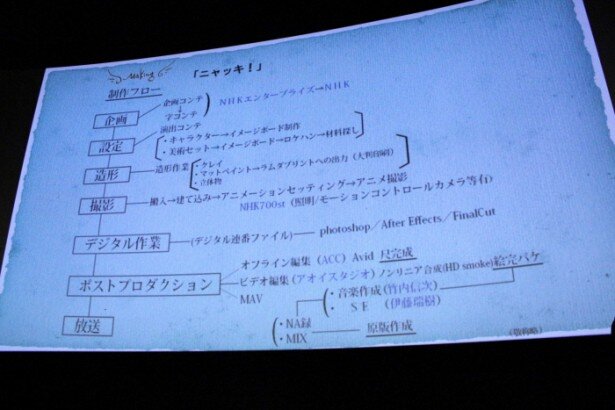 Making
「ニャッキ！」
制作フロー
企画
企画コンテ
↓
字コンテ
NHKエンタープライズ→NHK
設定
演出コンテ
・キャラクター→イメージボード制作
・美術セット→イメージボード→ロケハン→材料探し
造形
造形作業
・クレイ
・マットペイント→ラムダプリントへの出力（大判印刷）
・立体物
撮影
搬入→建て込み→アニメーションセッティング→アニメ撮影
NHK700st（照明/モーションコントロールカメラ等有）
デジタル作業
(デジタル連番ファイル)
photoshop／After Effects／FinalCut
ポストプロダクション
オフライン編集（ACC）Avid 尺完成
ビデオ編集（アオイスタジオ）ノンリニア合成(HD smoke)絵完パケ
MAV
・音楽作成（竹内信次）
・SE（伊藤瑞樹）
・NA録
・MIX
原版作成
放送
（敬称略）